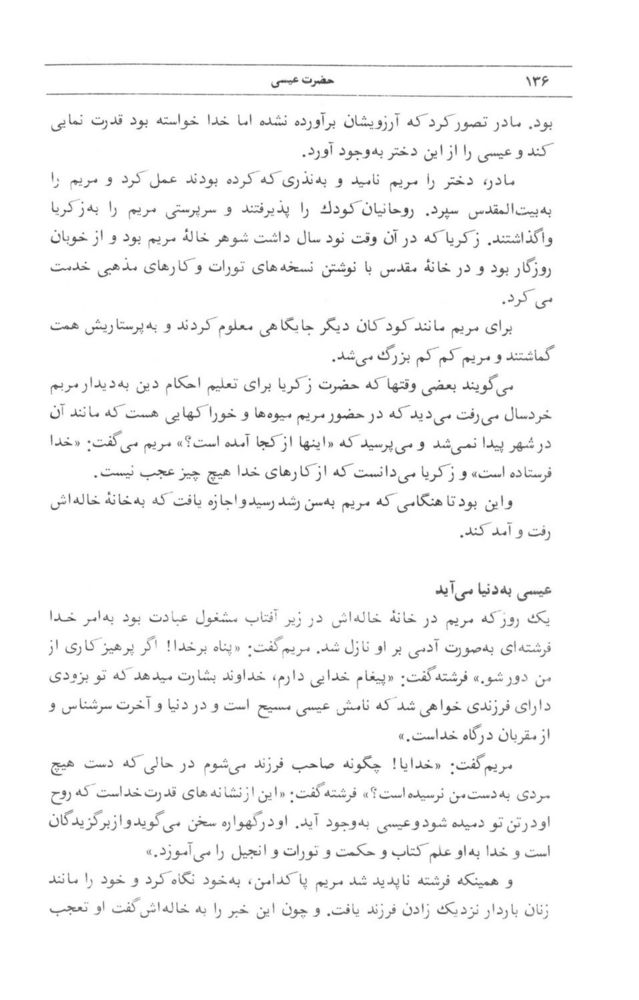 ۱۳۶
حضرت عیسی
بود. مادر تصور کرد که آرزویشان برآورده نشده اما خدا خواسته بود قدرت نمایی
کند و عیسی را از این دختر به‌وجود آورد.
مادر، دختر را مریم نامید و به‌نذری که کرده بودند عمل کرد و مریم را
به‌بیت‌المقدس سپرد. روحانیان کودك را پذیرفتند و سرپرستی مریم را به‌زکریا
واگذاشتند. زکریا که در آن وقت نود سال داشت شوهر خالهٔ مریم بود و از خوبان
روزگار بود و در خانهٔ مقدس با نوشتن نسخه‌های تورات و کارهای مذهبی خدمت
می‌کرد.
برای مریم مانند کودکان دیگر جایگاهی معلوم کردند و به‌پرستاریش همت
گماشتند و مریم کم کم بزرگ می‌شد.
می‌گویند بعضی وقتها که حضرت زکریا برای تعلیم احکام دین به‌دیدار مریم
خردسال می‌رفت می‌دید که در حضور مریم میوه‌ها و خوراکهایی هست که مانند آن
در شهر پیدا نمی‌شد و می‌پرسید که «اینها از کجا آمده است؟» مریم می‌گفت: «خدا
فرستاده است» و زکریا می‌دانست که از کارهای خدا هیچ چیز عجب نیست.
و این بود تا هنگامی که مریم به‌سن رشد رسید و اجازه یافت که به‌خانهٔ خاله‌اش
رفت و آمد کند.
عیسی به‌دنیا می‌آید
یك روز که مریم در خانهٔ خاله‌اش در زیر آفتاب مشغول عبادت بود به‌امر خدا
فرشته‌ای به‌صورت آدمی بر او نازل شد. مریم گفت: «پناه برخدا! اگر پرهیزکاری از
من دور شو.» فرشته گفت: «پیغام خدایی دارم، خداوند بشارت میدهد که تو بزودی
دارای فرزندی خواهی شد که نامش عیسی مسیح است و در دنیا و آخرت سرشناس و
از مقربان درگاه خداست.»
مریم گفت: «خدایا! چگونه صاحب فرزند می‌شوم در حالی که دست هیچ
مردی به‌دست من نرسیده است؟» فرشته گفت: «این از نشانه‌های قدرت خداست که روح
او در تن تو دمیده شود و عیسی به‌وجود آید. او در گهواره سخن می‌گوید و از برگزیدگان
است و خدا به‌او علم کتاب و حکمت و تورات و انجیل را می‌آموزد.»
و همینکه فرشته ناپدید شد مریم پاکدامن، به‌خود نگاه کرد و خود را مانند
زنان باردار نزدیك زادن فرزند یافت. و چون این خبر را به خاله‌اش گفت او تعجب